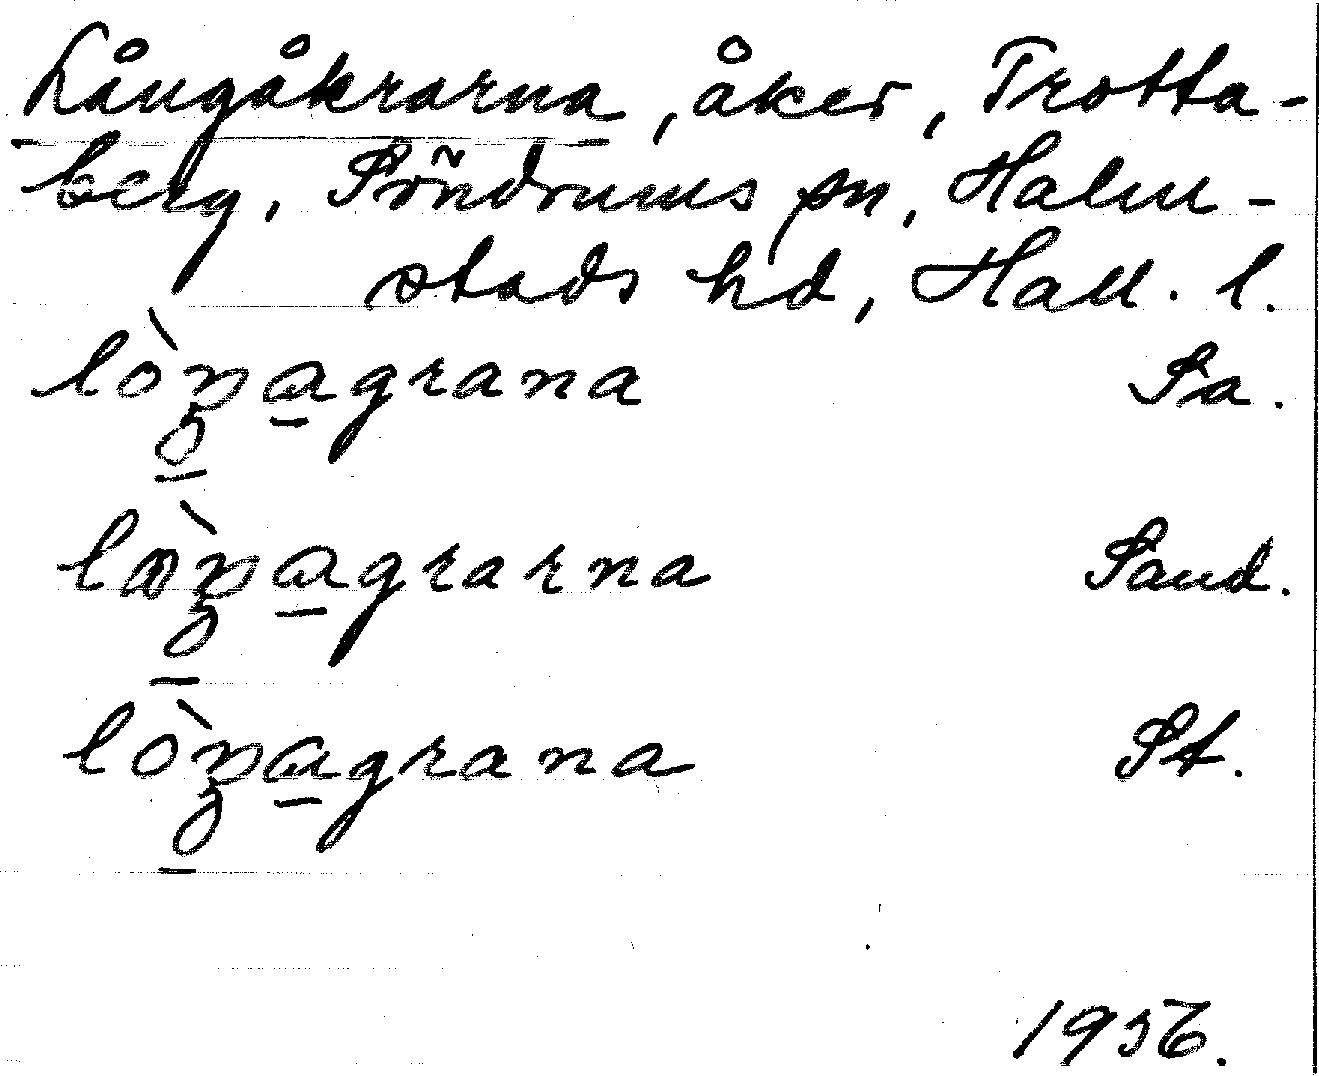 Långåkrarna, åker, Trotta-
berg, Söndrums sn, Halm-
stads hd, Hall. l.
lòŋagrana Sa.
lòŋagrarna Sand.
lòŋagrana St.
1936.